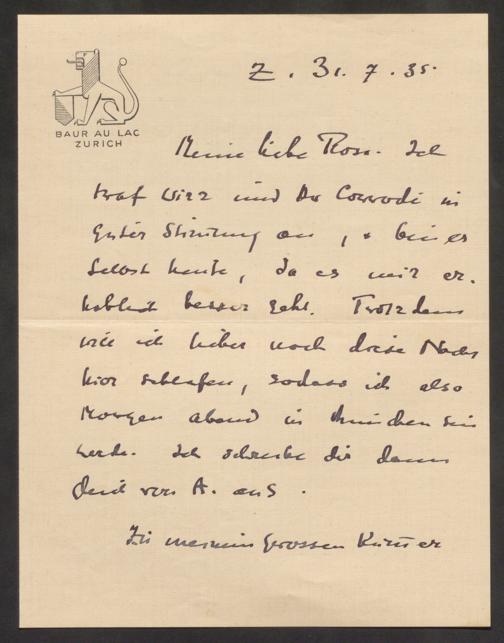 BAUR AU LAC
ZURICH
Z. 31. 7. 35.
Meine liebe Rosa. Ich
traf Wirz und Dr Corrodi in
guter Stimmung an, & bin es
selbst heute, da es mir er-
heblich besser geht. Trotzdem
will ich lieber noch diese Nacht
hier schlafen, sodass ich also
Morgen abend in München sein
werde. Ich schreibe dir dann
von A. aus.
Zu meinem grossen Kummer